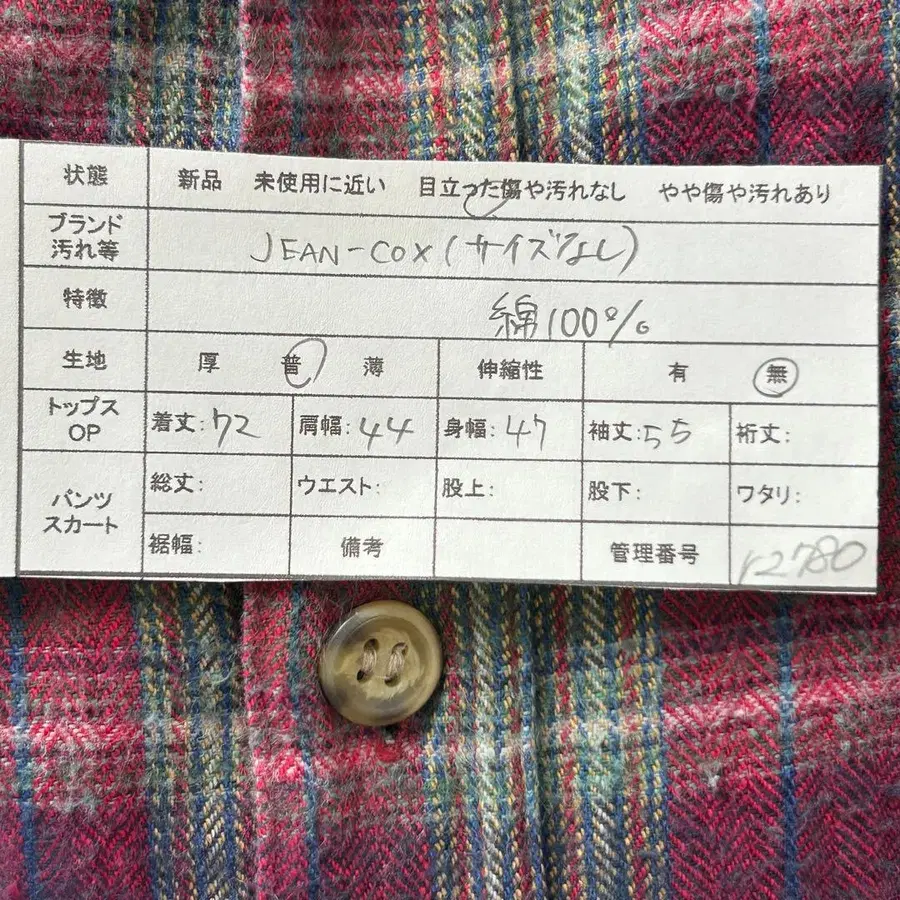 状態 新品 未使用に近い 目立った傷や汚れなし やや傷や汚れあり
ブランド
汚れ等 JEAN-COX(サイズなし)
特徴 綿100%
生地 厚 普 薄 伸縮性 有 無
トップス
OP 着丈:72 肩幅:44 身幅:47 袖丈:55 裄丈:
パンツ
スカート 総丈: ウエスト: 股上: 股下: ワタリ:
裾幅: 備考 管理番号 r2780